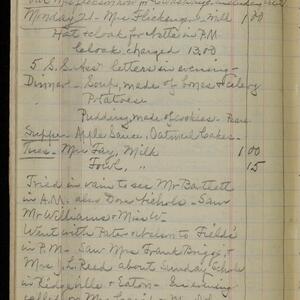 Monday 21 - Mrs Flickinger, Milk 1 00
Hat & cloak for Nettie in P.M.
Cloak charged 13.00
5 S.S. letters in evening -
Dinner - Soup, made of bones & celery
Potatoes
Pudding, made of cookies -
Supper Apple Sauce, Oatmeal Cakes -
Tues - Mrs Fay, Milk 1 00
Fowl, " 15
Tried in vain to see Mr Bartlett
in A.M. also Dora Nichols - Saw
Mr Williams & Miss W -
Went with Pater & Helen to Fields'
in P.M. - Saw Mrs Frank Briggs &
Mrs J. L. Reed about Sunday School
in Ridgeville & Eaton - In evening
called on Mrs